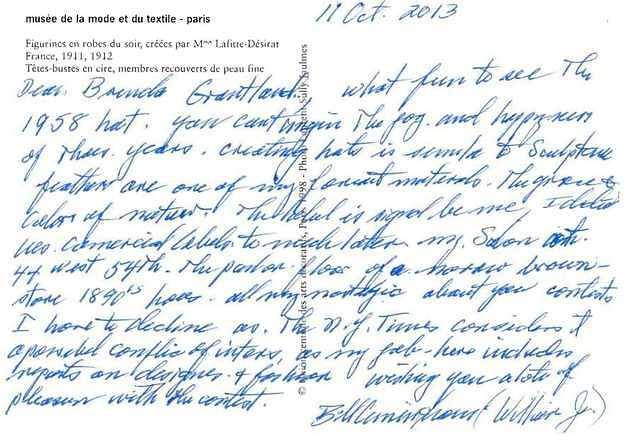 musée de la mode et du textile - paris
11 Oct. 2013
Figurines en robes du soir, créées par Mme Lafitte-Désirat
France, 1911, 1912
Têtes-bustes en cire, membres recouverts de peau fine
Dear Brenda Grantland, what fun to see The
1958 hat. you can't imagin The joy and happyness
of Those years. creating hats is similar to Sculpture
feathers are one of my favorit materials. The grace &
Colors of nature. The label is signed be me, I did
comercial labels to much later. my Salon
44 West 54th. The parlor floor of a narrow brown-
stone 1890's house. all very nostalgic about you contests
I have to decline as The N.Y. Times considers it
a possible conflic of interes, as my job here includes
reports on designers & fashion wishing you a lots of
pleasure with the contest.
Bill Cunningham (William Jr.)
© Union centrale des arts décoratifs, Paris, 1998 - Photo Laurent Sully Jaulmes